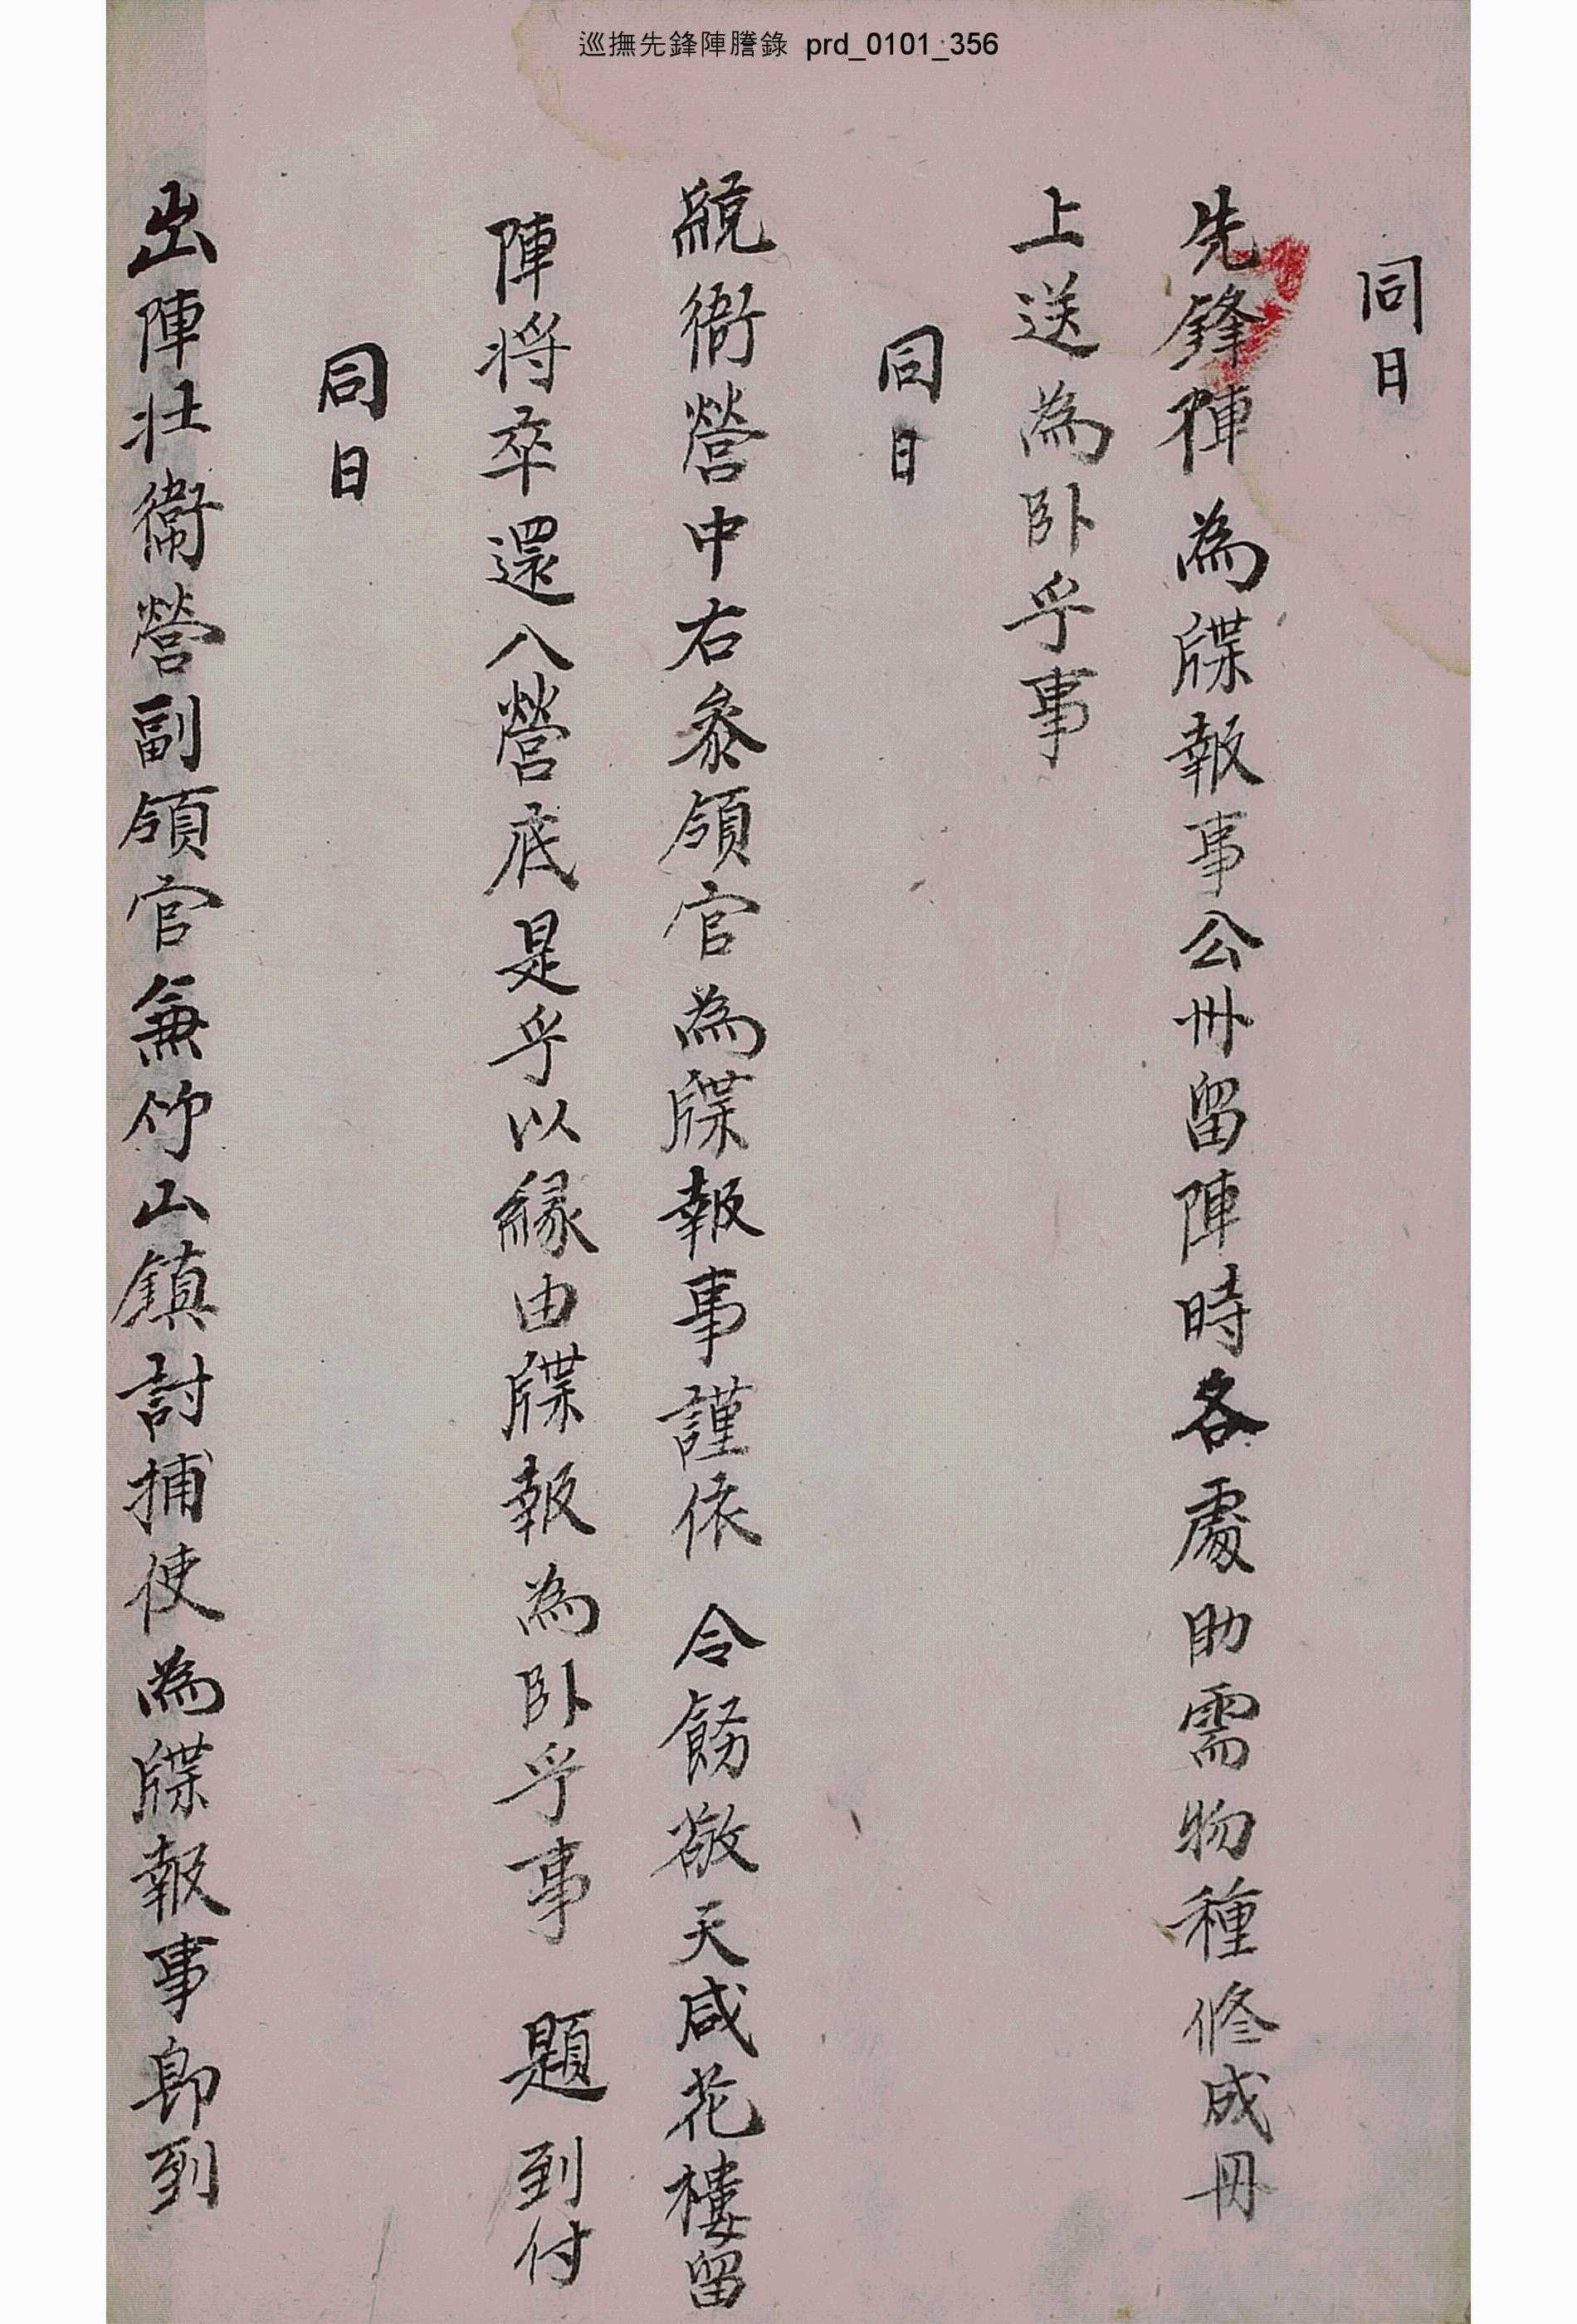 巡撫先鋒陣謄錄 prd_0101_356
同日
先鋒陣爲牒報事公州留陣時各處助需物種修成冊
上送爲卧乎事
同日
統衛營中右叅領官爲牒報事謹依 令飭敬天咸花樓留
陣將卒還入營底是乎以緣由牒報爲卧乎事 題 到付
同日
出陣壯衛營副領官兼竹山鎭討捕使爲牒報事卽到